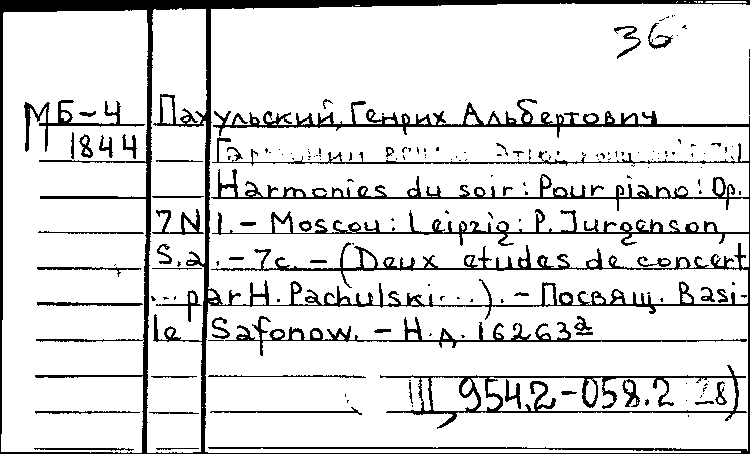 36
МБ-4 Пахульский, Генрих Альбертович
1844 Гармонии
Harmonies du soir: Pour piano: Op.
7 N 1. - Moscou: Leipzig: P. Jurgenson,
S.a. - 7c. - (Deux etudes de concert
...par H. Pachulski...). - Посвящ. Basi-
le Safonow. - Н.д. 16263a
Щ 954.2-058.2 28)